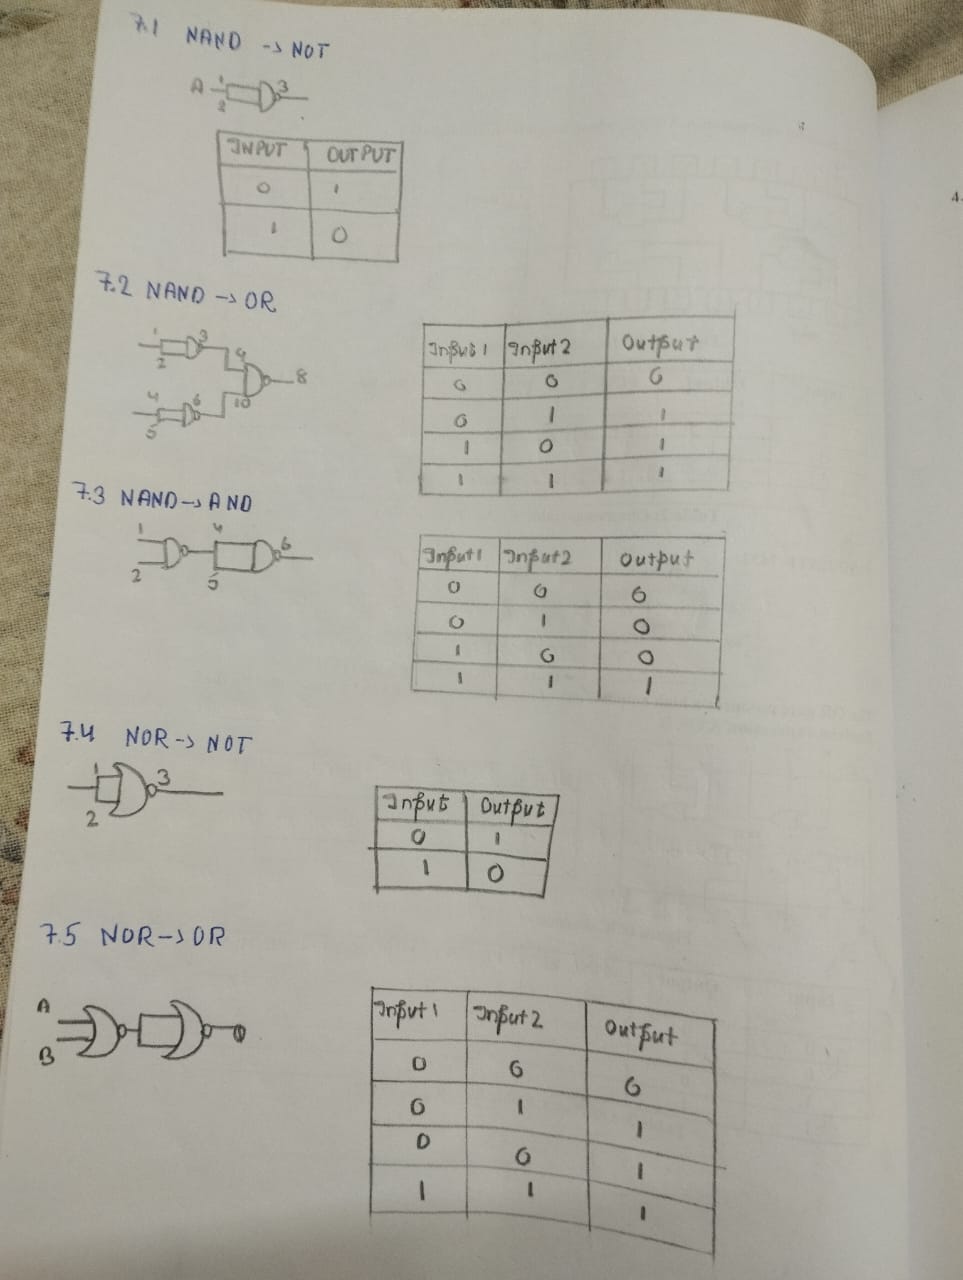 7.1 NAND -> NOT
A 1 2 3
INPUT OUTPUT
0 1
1 0
7.2 NAND -> OR
1 2 3
4 5 6
9 10 8
Input 1 Input 2 Output
0 0 0
0 1 1
1 0 1
1 1 1
7.3 NAND -> AND
1 2 4 5 6
Input 1 Input 2 Output
0 0 0
0 1 0
1 0 0
1 1 1
7.4 NOR -> NOT
1 2 3
Input Output
0 1
1 0
7.5 NOR -> OR
A
B
Input 1 Input 2 Output
0 0 0
0 1 1
0 0 1
1 1 1
4.